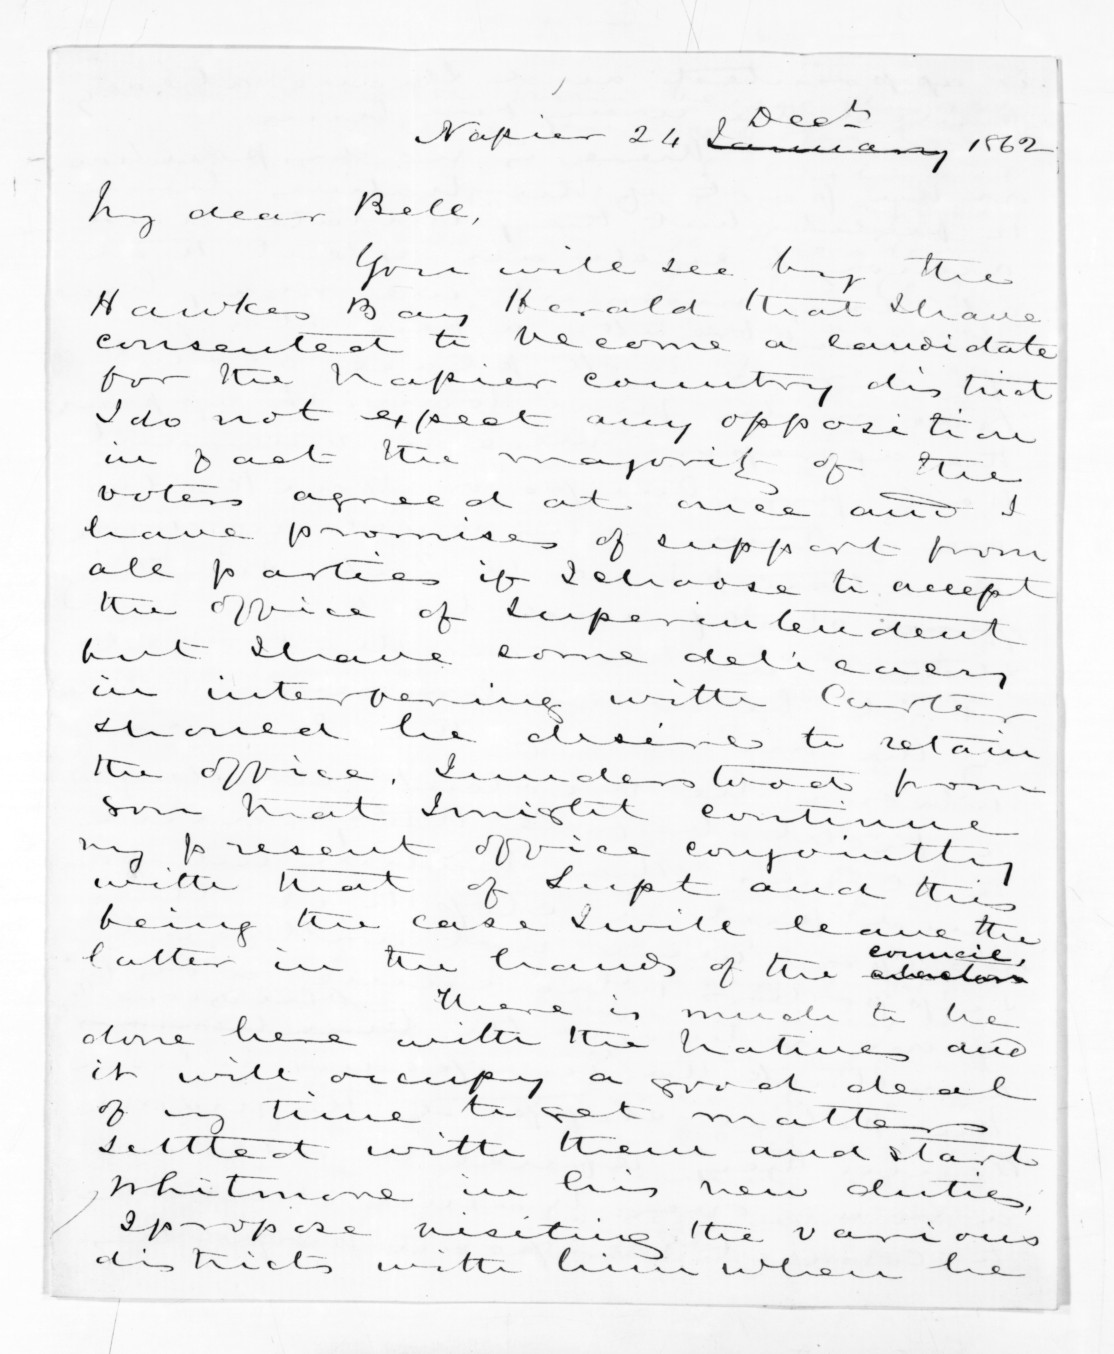 Napier 24 January Decr 1862
My dear Bell,
You will see by the
Hawkes Bay Herald that I have
consented to become a candidate
for the Napier country district
I do not expect any opposition
in fact the majority of the
voters agreed at once and I
have promises of support from
all parties if I choose to accept
the office of Superintendent
but I have some delicacy
in interfering with Carter
should he desire to retain
the office. I understood from
you that I might continue
my present office conjointly
with that of Supt and this
being the case I will leave the
latter in the hands of the council,
There is much to be
done here with the Natives and
it will occupy a good deal
of my time to get matters
settled with them and start
Whitmore in his new duties,
I propose visiting the various
districts with him when he